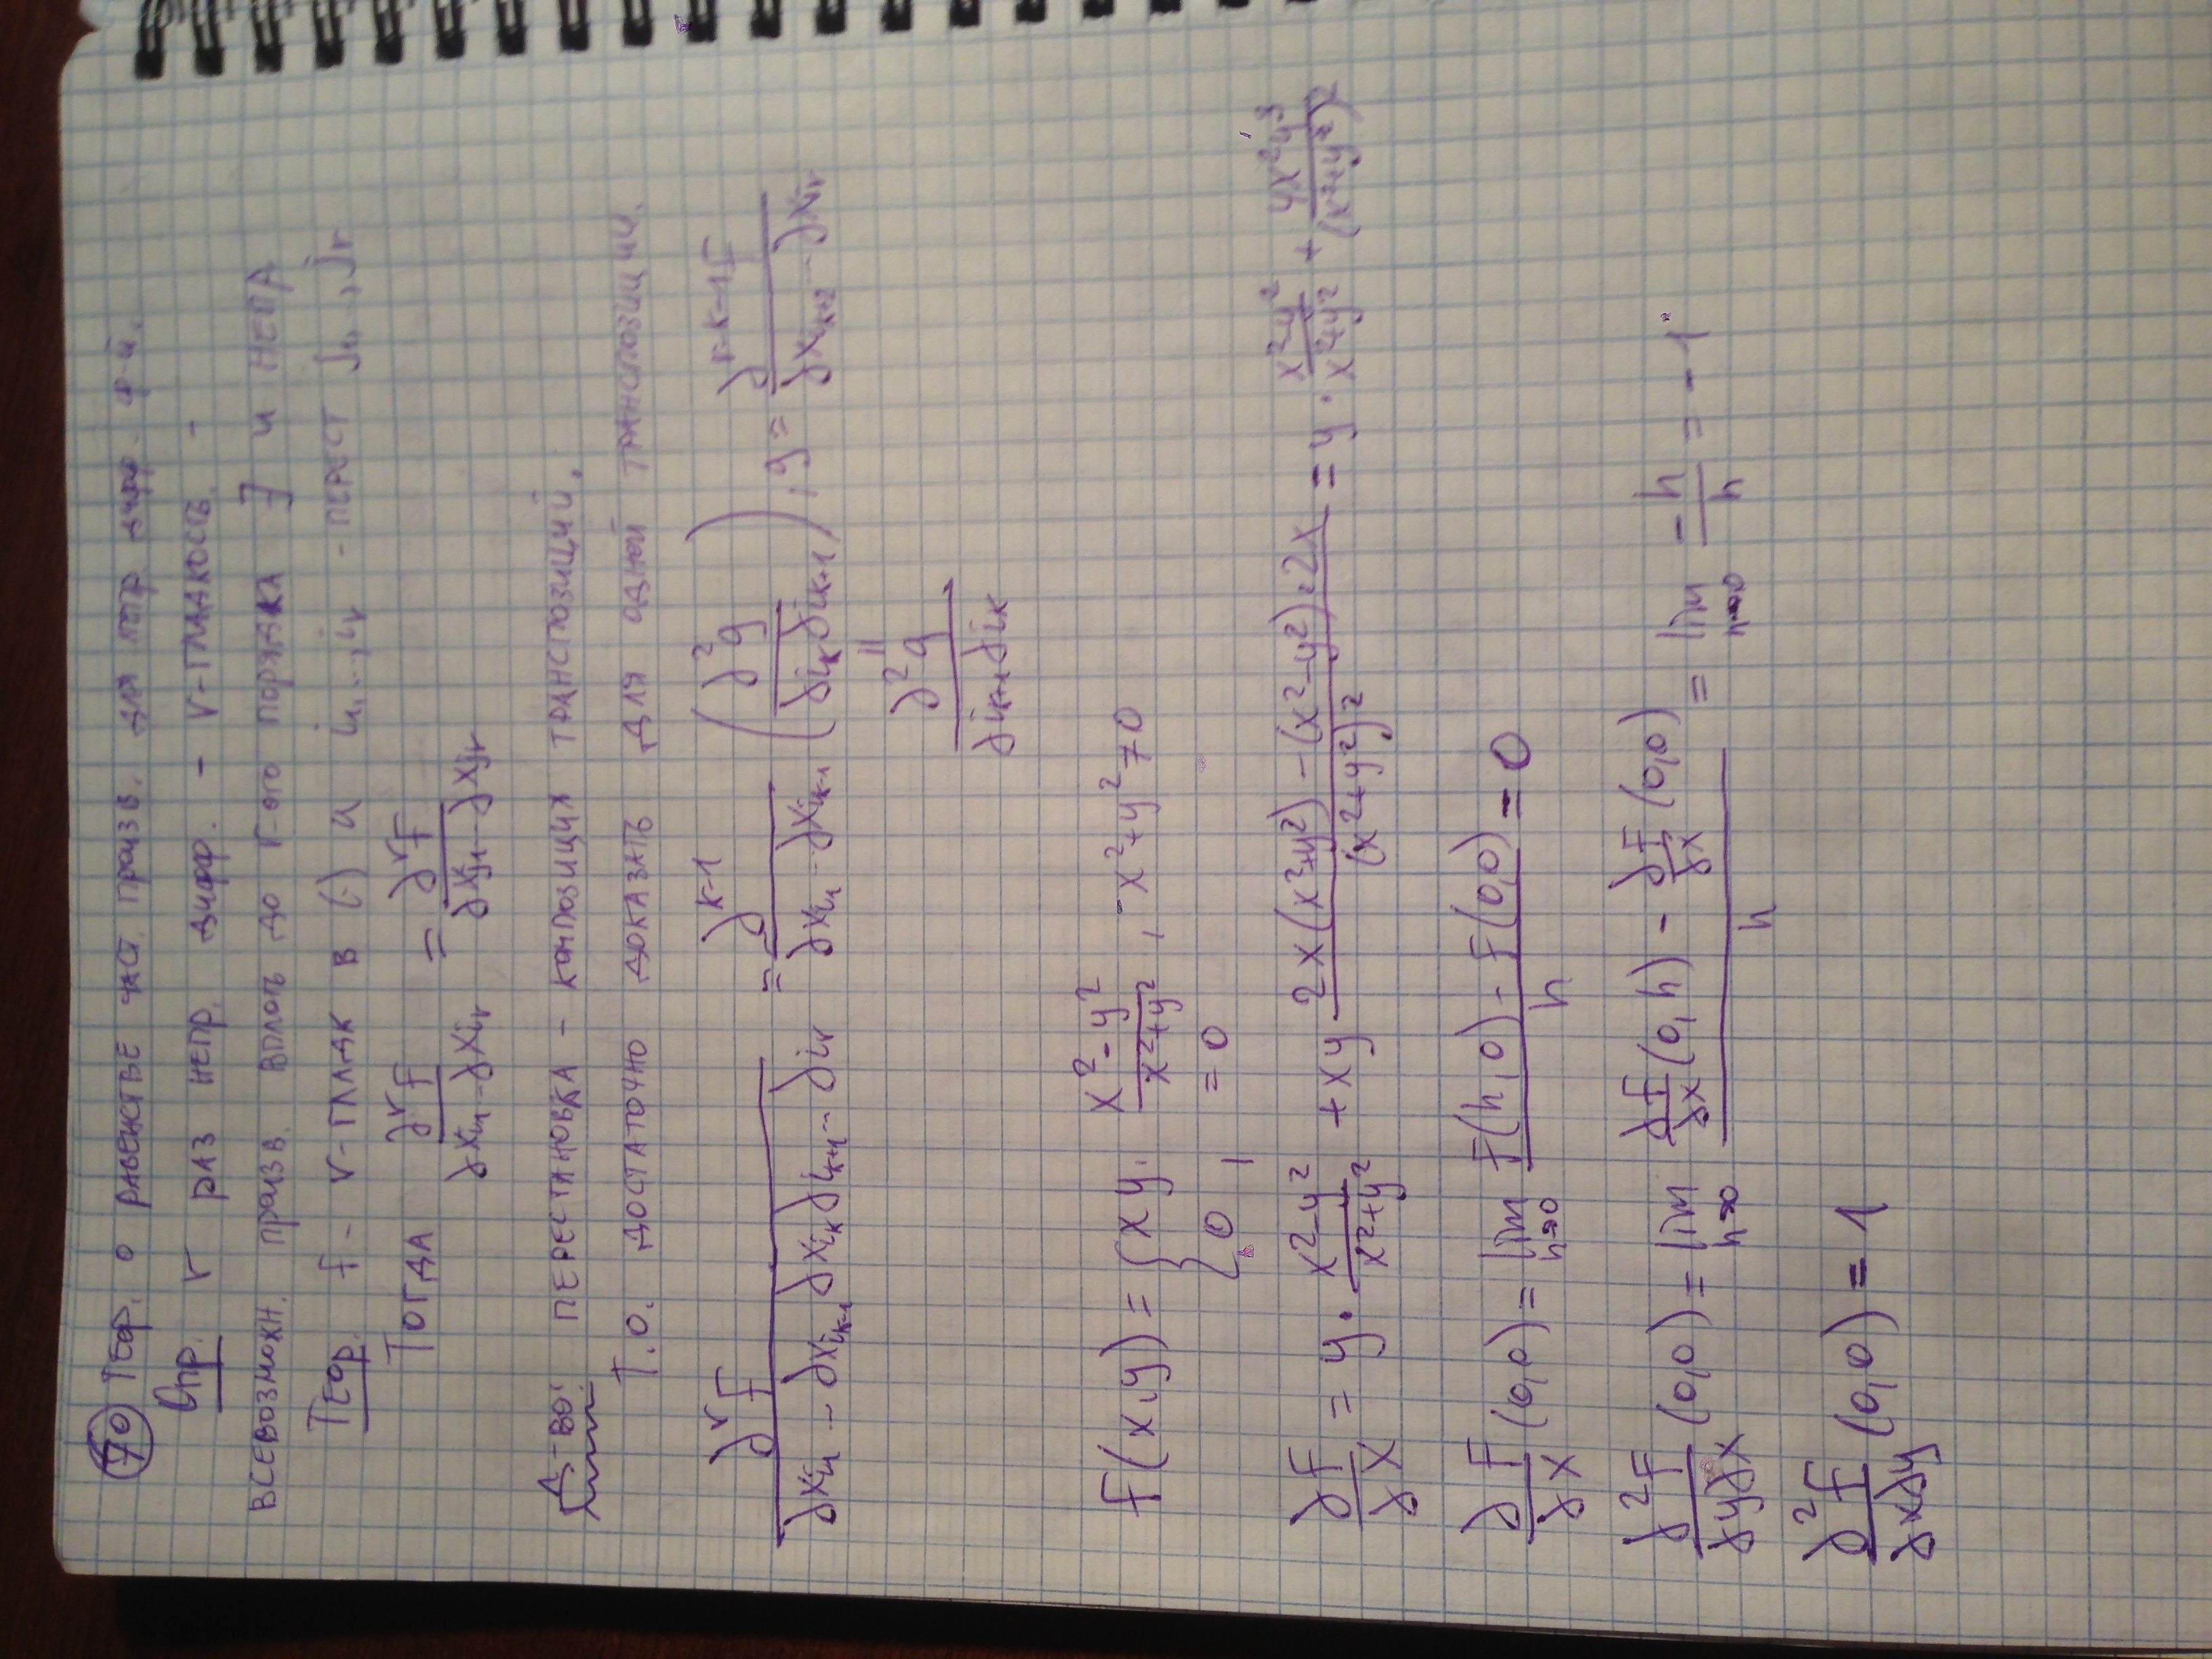 70 Теор. о равенстве част. произв. для непр. дифф. ф-й.
Опр. r раз непр. дифф. - r-гладкость. -
всевозможн. произв. вплоть до r-ого порядка ∃ и непр
Теор. f - r-гладк в (·) a i₁,...,iᵣ - перест j₁,..,jᵣ
Тогда ∂ʳf/(∂xi₁...∂xiᵣ) = ∂ʳf/(∂xj₁...∂xjᵣ)
Д-во: перестановка - композиция транспозиций.
Т.о. достаточно доказать для одной транспозиции.
∂ʳf/(∂xi₁...∂xiₖ₋₁∂xiₖ∂iₖ₊₁...∂iᵣ) = ∂ᵏ⁻¹/(∂xi₁...∂xiₖ₋₁) (∂²g/(∂iₖ∂iₖ₊₁)), g = ∂ʳ⁻ᵏ⁻¹f/(∂xₖ₊₂...∂xiᵣ)
||
∂²g/(∂iₖ₊₁∂iₖ)
f(x,y) = { xy · (x²-y²)/(x²+y²), -x²+y²≠0
0, =0
∂f/∂x = y · (x²-y²)/(x²+y²) + xy (2x(x²+y²) - (x²-y²)·2x)/(x²+y²)² = y · (x²-y²)/(x²+y²) + 4x²y³/(x²+y²)²
∂f/∂x (0,0) = lim h→0 (f(h,0) - f(0,0))/h = 0
∂²f/(∂y∂x) (0,0) = lim h→0 (∂f/∂x (0,h) - ∂f/∂x (0,0))/h = lim h→0 -h/h = -1
∂²f/(∂x∂y) (0,0) = 1